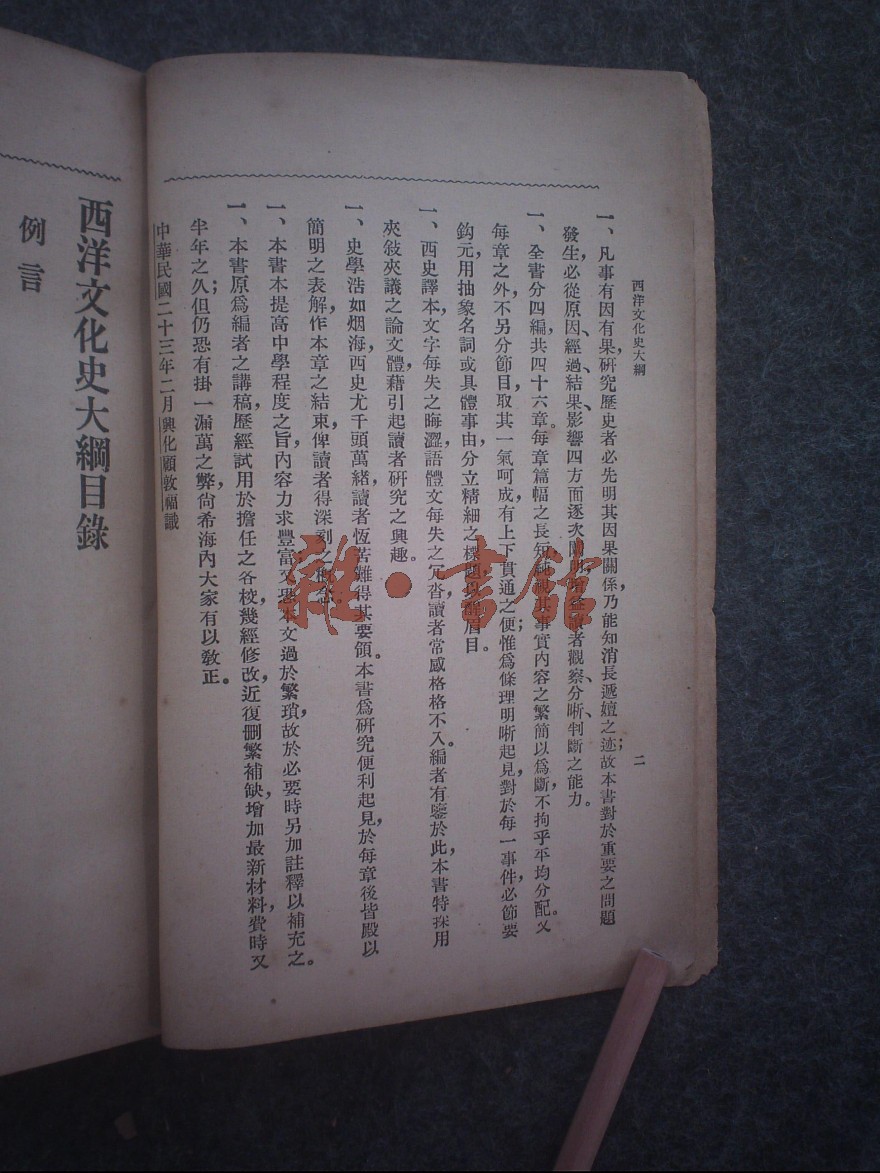 西洋文化史大綱
二
一、凡事有因有果，研究歷史者必先明其因果關係，乃能知消長遞嬗之迹；故本書對於重要之問題
發生，必從原因、經過、結果、影響四方面逐次闡明，增益讀者觀察、分晰、判斷之能力。
一、全書分四編，共四十六章。每章篇幅之長短，純視其事實內容之繁簡以爲斷，不拘乎平均分配。又
每章之外，不另分節目，取其一氣呵成，有上下貫通之便；惟爲條理明晰起見，對於每一事件，必節要
鈎元，用抽象名詞或具體事由，分立精細之標題，以醒眉目。
一、西史譯本，文字每失之晦澀，語體文每失之冗沓，讀者常感格格不入。編者有鑒於此，本書特採用
夾敍夾議之論文體，藉引起讀者研究之興趣。
一、史學浩如烟海，西史尤千頭萬緒，讀者恆苦難得其要領。本書爲研究便利起見，於每章後皆殿以
簡明之表解，作本章之結束，俾讀者得深刻之概念。
一、本書本提高中學程度之旨，內容力求豐富；又恐本文過於繁瑣，故於必要時另加註釋以補充之。
一、本書原爲編者之講稿，歷經試用於擔任之各校，幾經修改，近復刪繁補缺，增加最新材料，費時又
半年之久；但仍恐有掛一漏萬之弊，尙希海內大家有以敎正。
中華民國二十三年二月興化顧敦福識
西洋文化史大綱目錄
例言
雜·書館